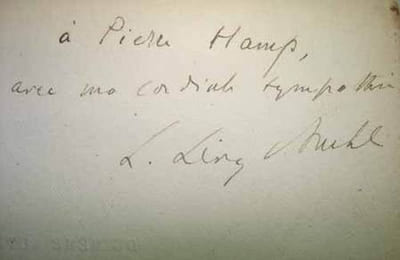 à Pierre Hamp,
avec ma cordiale sympathie
L. Lévy Bruhl